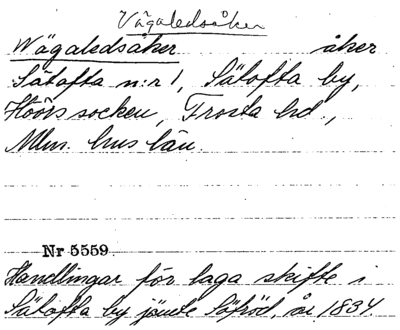 Vägaledsåker
Wägaledsåker åker
Sätofta n:r 1, Sätofta by,
Höörs socken, Frosta hd.,
Mlm. hus län.
Nr 5559
Handlingar för laga skifte i
Sätofta by jämte Säfröd, år 1834.